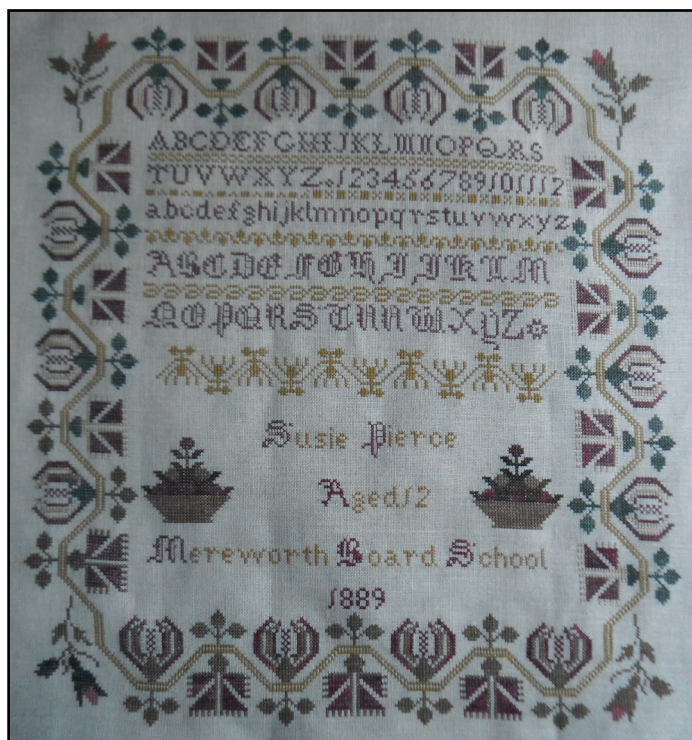 ABCDEFGHIJKLMNOPQRS
TUVWXYZ.1234566789101112
abcdefghijklmnopqrstuvwxyz
ABCDEFGHIJKLM
NOPQRSTUVWXYZ
Susie Pierce
Aged 12
Mereworth Board School
1889